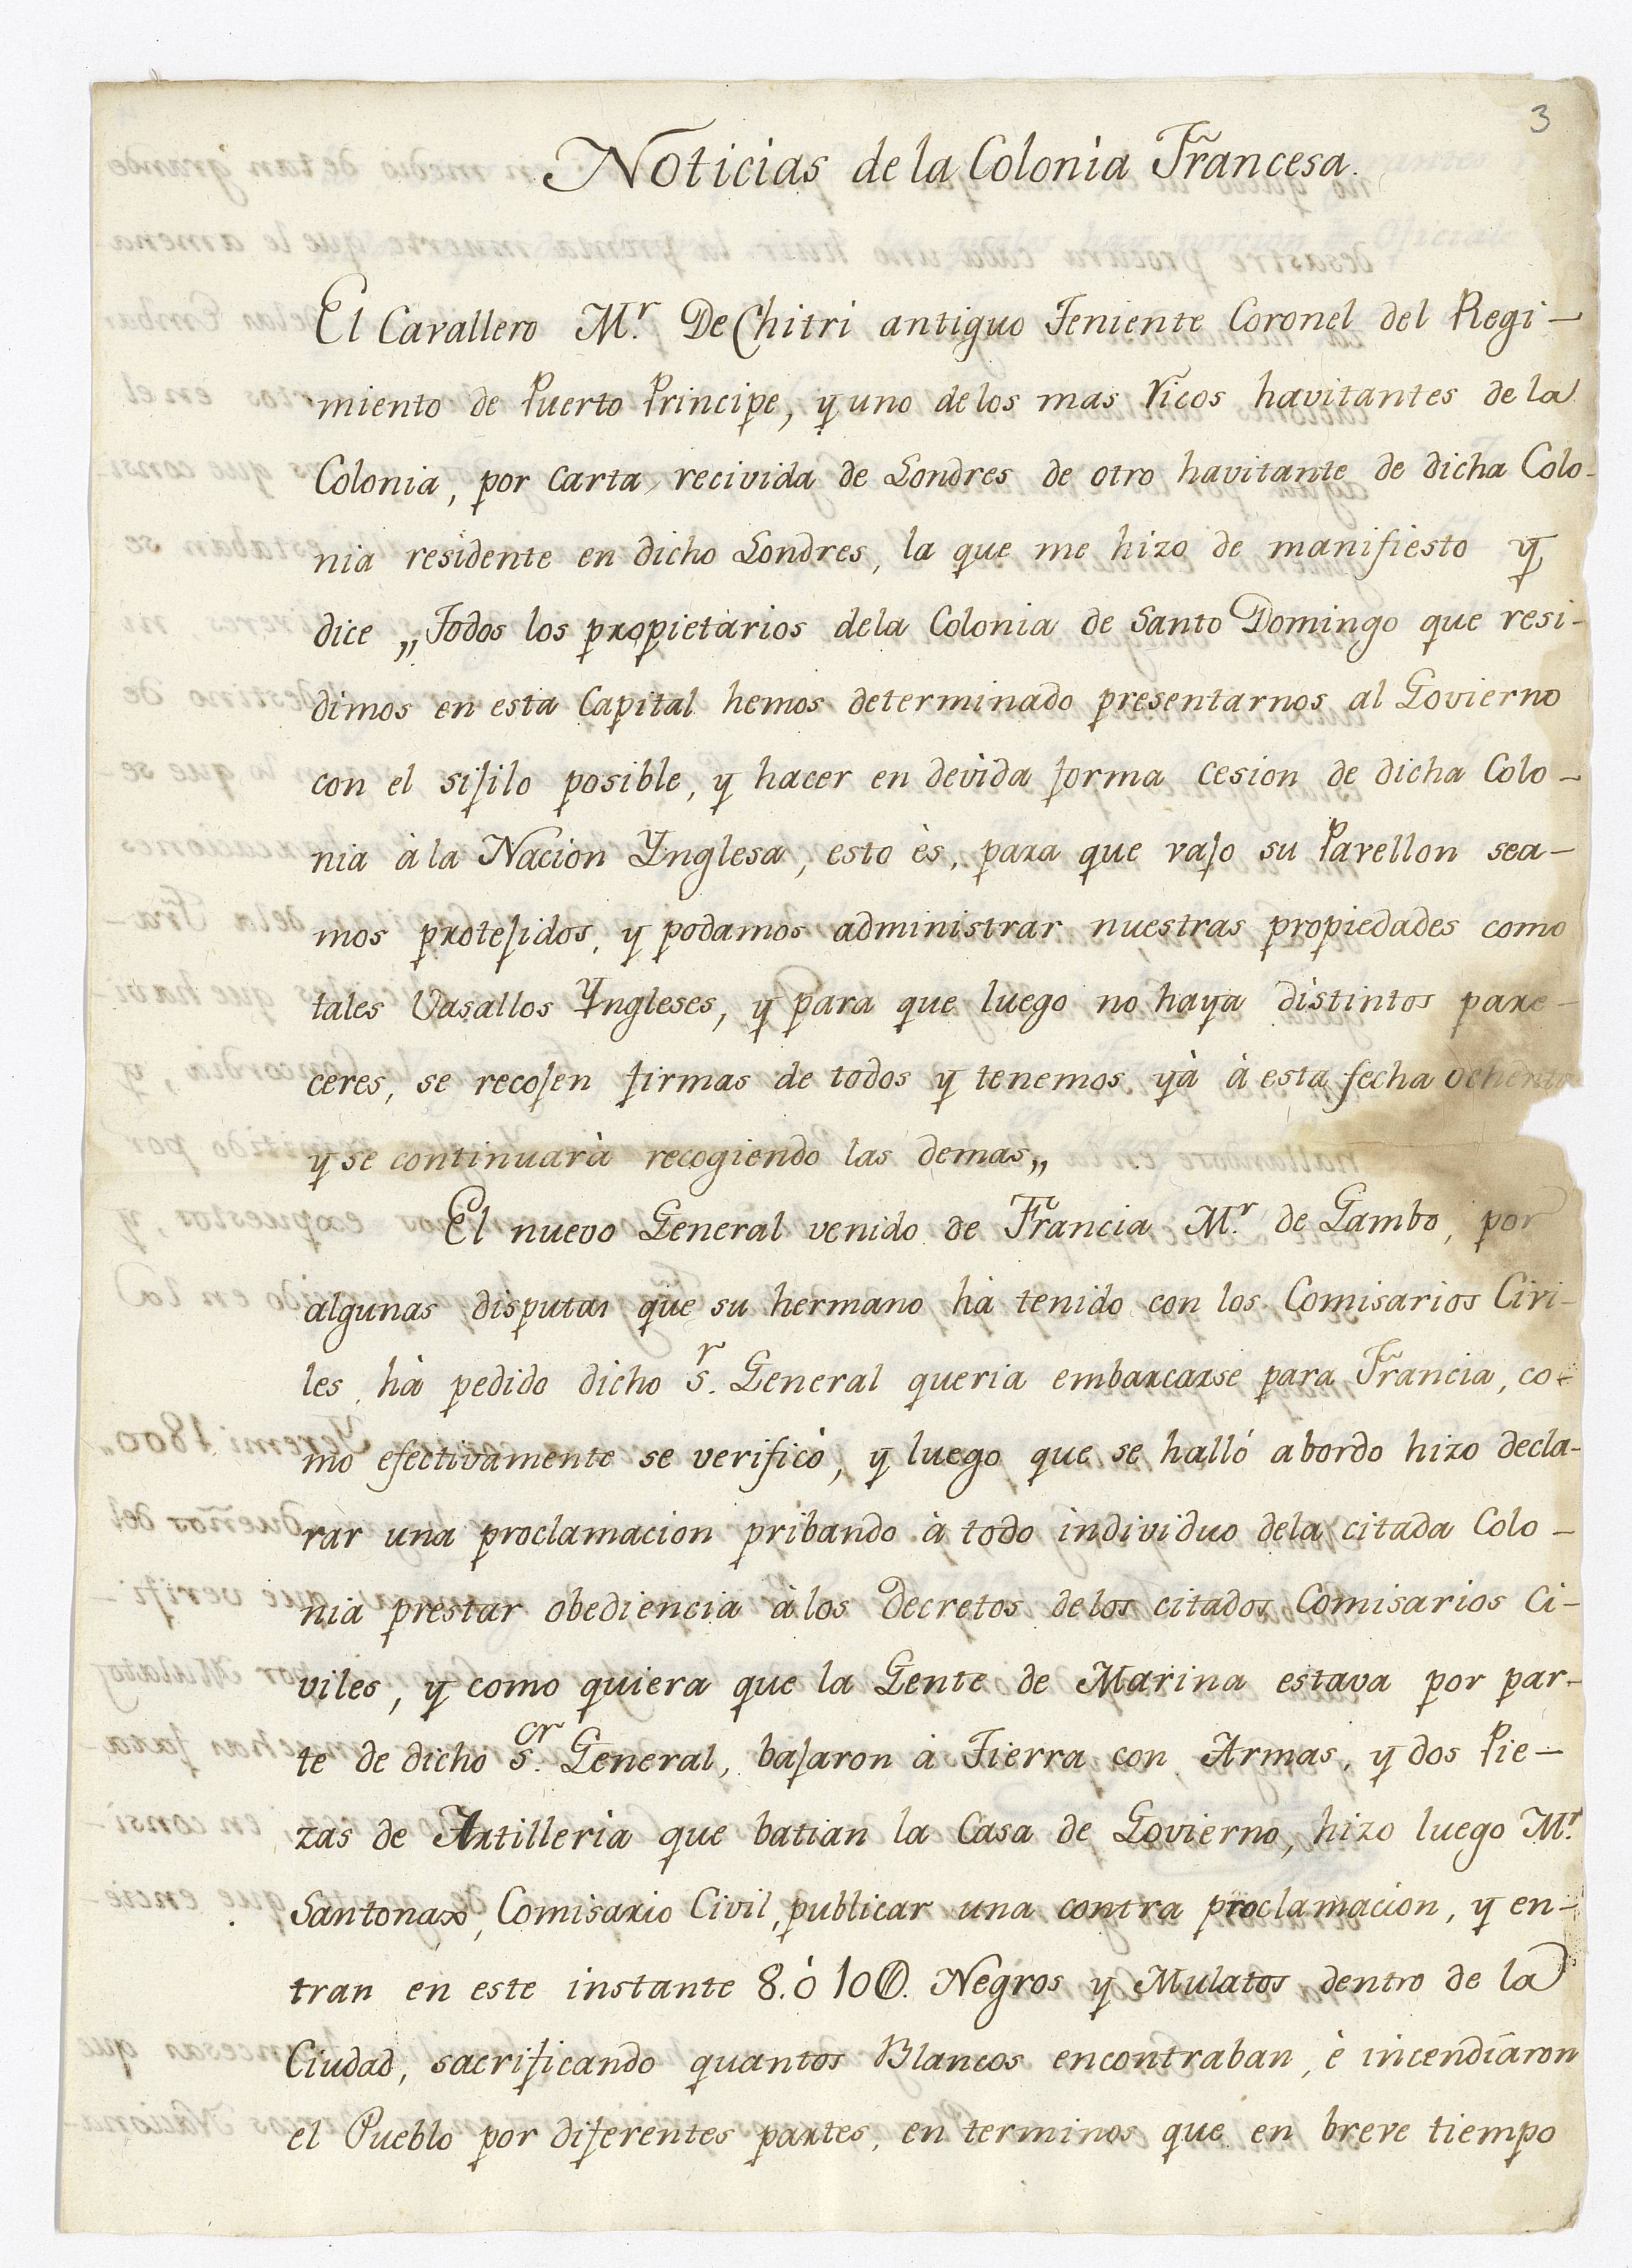 3
Noticias de la Colonia Francesa.
El Cavallero Mr. De Chitri antiguo Teniente Coronel del Regi-
miento de Puerto Principe, y uno de los mas ricos havitantes de la
Colonia, por Carta recivida de Londres de otro havitante de dicha Colo-
nia residente en dicho Londres, la que me hizo de manifiesto y
dice „Todos los propietarios dela Colonia de Santo Domingo que resi-
dimos en esta Capital hemos determinado presentarnos al Govierno
con el sijilo posible, y hacer en devida forma cesion de dicha Colo-
nia à la Nacion Ynglesa, esto ès, para que vajo su Pavellon sea-
mos protejidos, y podamos administrar nuestras propiedades como
tales Vasallos Yngleses, y para que luego no haya distintos pare-
ceres, se recojen firmas de todos y tenemos yà à esta fecha ochenta
y se continuarà recogiendo las demas„
El nuevo General venido de Francia Mr. de Gambo, por
algunas disputas que su hermano hà tenido con los Comisarios Civi-
les, hà pedido dicho Sr. General queria embarcarse para Francia, co-
mo efectivamente se verificò, y luego que se halló abordo hizo decla-
rar una proclamacion pribando à todo individuo dela citada Colo-
nia prestar obediencia à los Decretos delos citados Comisarios Ci-
viles, y como quiera que la Gente de Marina estava por par-
te de dicho Sor. General, bajaron à Tierra con Armas, y dos Pie-
zas de Artilleria que batian la Casa de Govierno, hizo luego Mr.
Santonax, Comisario Civil, publicar una contra proclamacion, y en-
tran en este instante 8. ò 10@. Negros y Mulatos dentro de la
Ciudad, sacrificando quantos Blancos encontraban, è incendiaron
el Pueblo por diferentes partes, en terminos que en breve tiempo